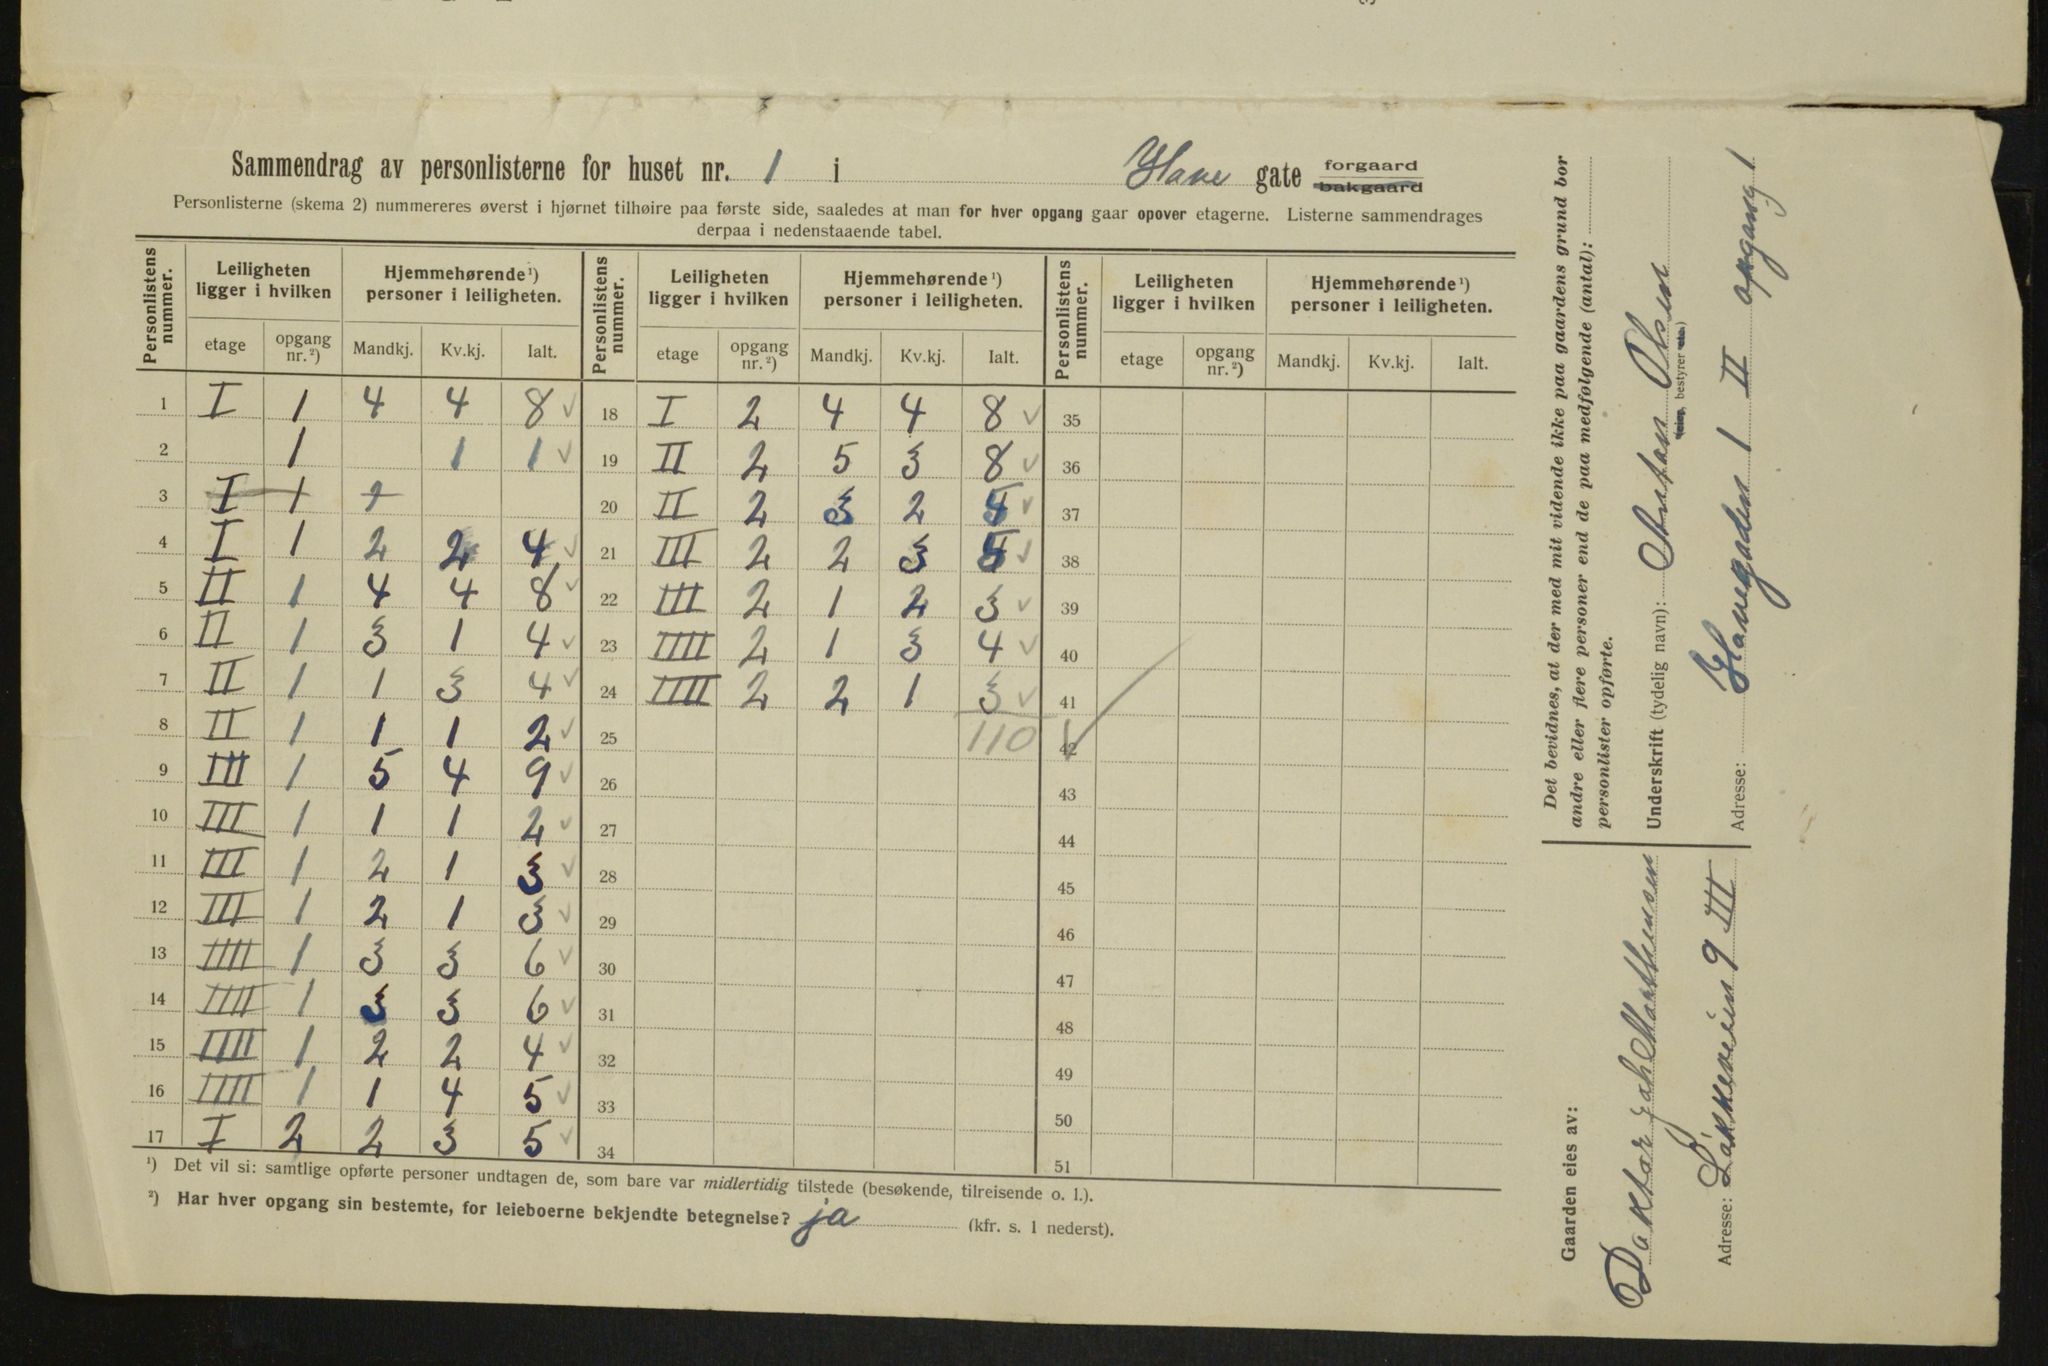 Sammendrag av personlisterne for huset nr. 1 i Have gate forgaard bakgaard
Personlisterne (skema 2) nummereres øverst i hjørnet tilhøire paa første side, saaledes at man for hver opgang gaar opover etagerne. Listerne sammendrages
derpaa i nedenstaaende tabel.
Personlistens nummer. Leiligheten ligger i hvilken Hjemmehørende ¹) personer i leiligheten. Personlistens nummer. Leiligheten ligger i hvilken Hjemmehørende ¹) personer i leiligheten. Personlistens nummer. Leiligheten ligger i hvilken Hjemmehørende ¹) personer i leiligheten.
etage opgang nr. ²) Mandkj. Kv.kj. Ialt. etage opgang nr. ²) Mandkj. Kv.kj. Ialt. etage opgang nr. ²) Mandkj. Kv.kj. Ialt.
1 I 1 4 4 8 ✓ 18 I 2 4 4 8 ✓ 35
2 1 1 1 ✓ 19 II 2 5 3 8 ✓ 36
3 I 1 20 II 2 3 2 5 ✓ 37
4 I 1 2 2 4 ✓ 21 III 2 2 3 5 ✓ 38
5 II 1 4 4 8 ✓ 22 III 2 1 2 3 ✓ 39
6 II 1 3 1 4 ✓ 23 IIII 2 1 3 4 ✓ 40
7 II 1 1 3 4 ✓ 24 IIII 2 2 1 3 ✓ 41
8 II 1 1 1 2 ✓ 25 110 ✓ 42
9 III 1 5 4 9 ✓ 26 43
10 III 1 1 1 2 ✓ 27 44
11 III 1 2 1 3 ✓ 28 45
12 III 1 2 1 3 ✓ 29 46
13 IIII 1 3 3 6 ✓ 30 47
14 IIII 1 3 3 6 ✓ 31 48
15 IIII 1 2 2 4 ✓ 32 49
16 IIII 1 1 4 5 ✓ 33 50
17 I 2 2 3 5 ✓ 34 51
¹) Det vil si: samtlige opførte personer undtagen de, som bare var midlertidig tilstede (besøkende, tilreisende o. l.).
²) Har hver opgang sin bestemte, for leieboerne bekjendte betegnelse? ja (kfr. s. 1 nederst).
Det bevidnes, at der med mit vidende ikke paa gaardens grund bor
andre eller flere personer end de paa medfølgende (antal):
personlister opførte.
Underskrift (tydelig navn): Anton Olsen
bestyrer
Adresse: Havegaden 1 II opgang 1
Gaarden eies av:
Doktor Joh Marthinsen
Adresse: Løkkeveien 9 III